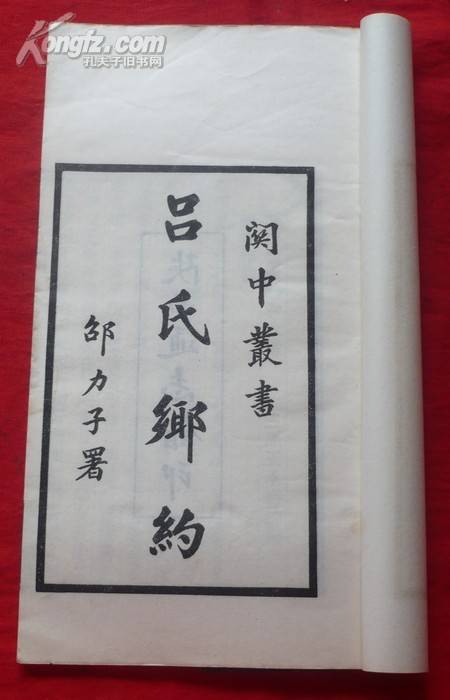 Kongfz.com
孔夫子旧书网
関中叢書
呂氏鄉約
邵力子署